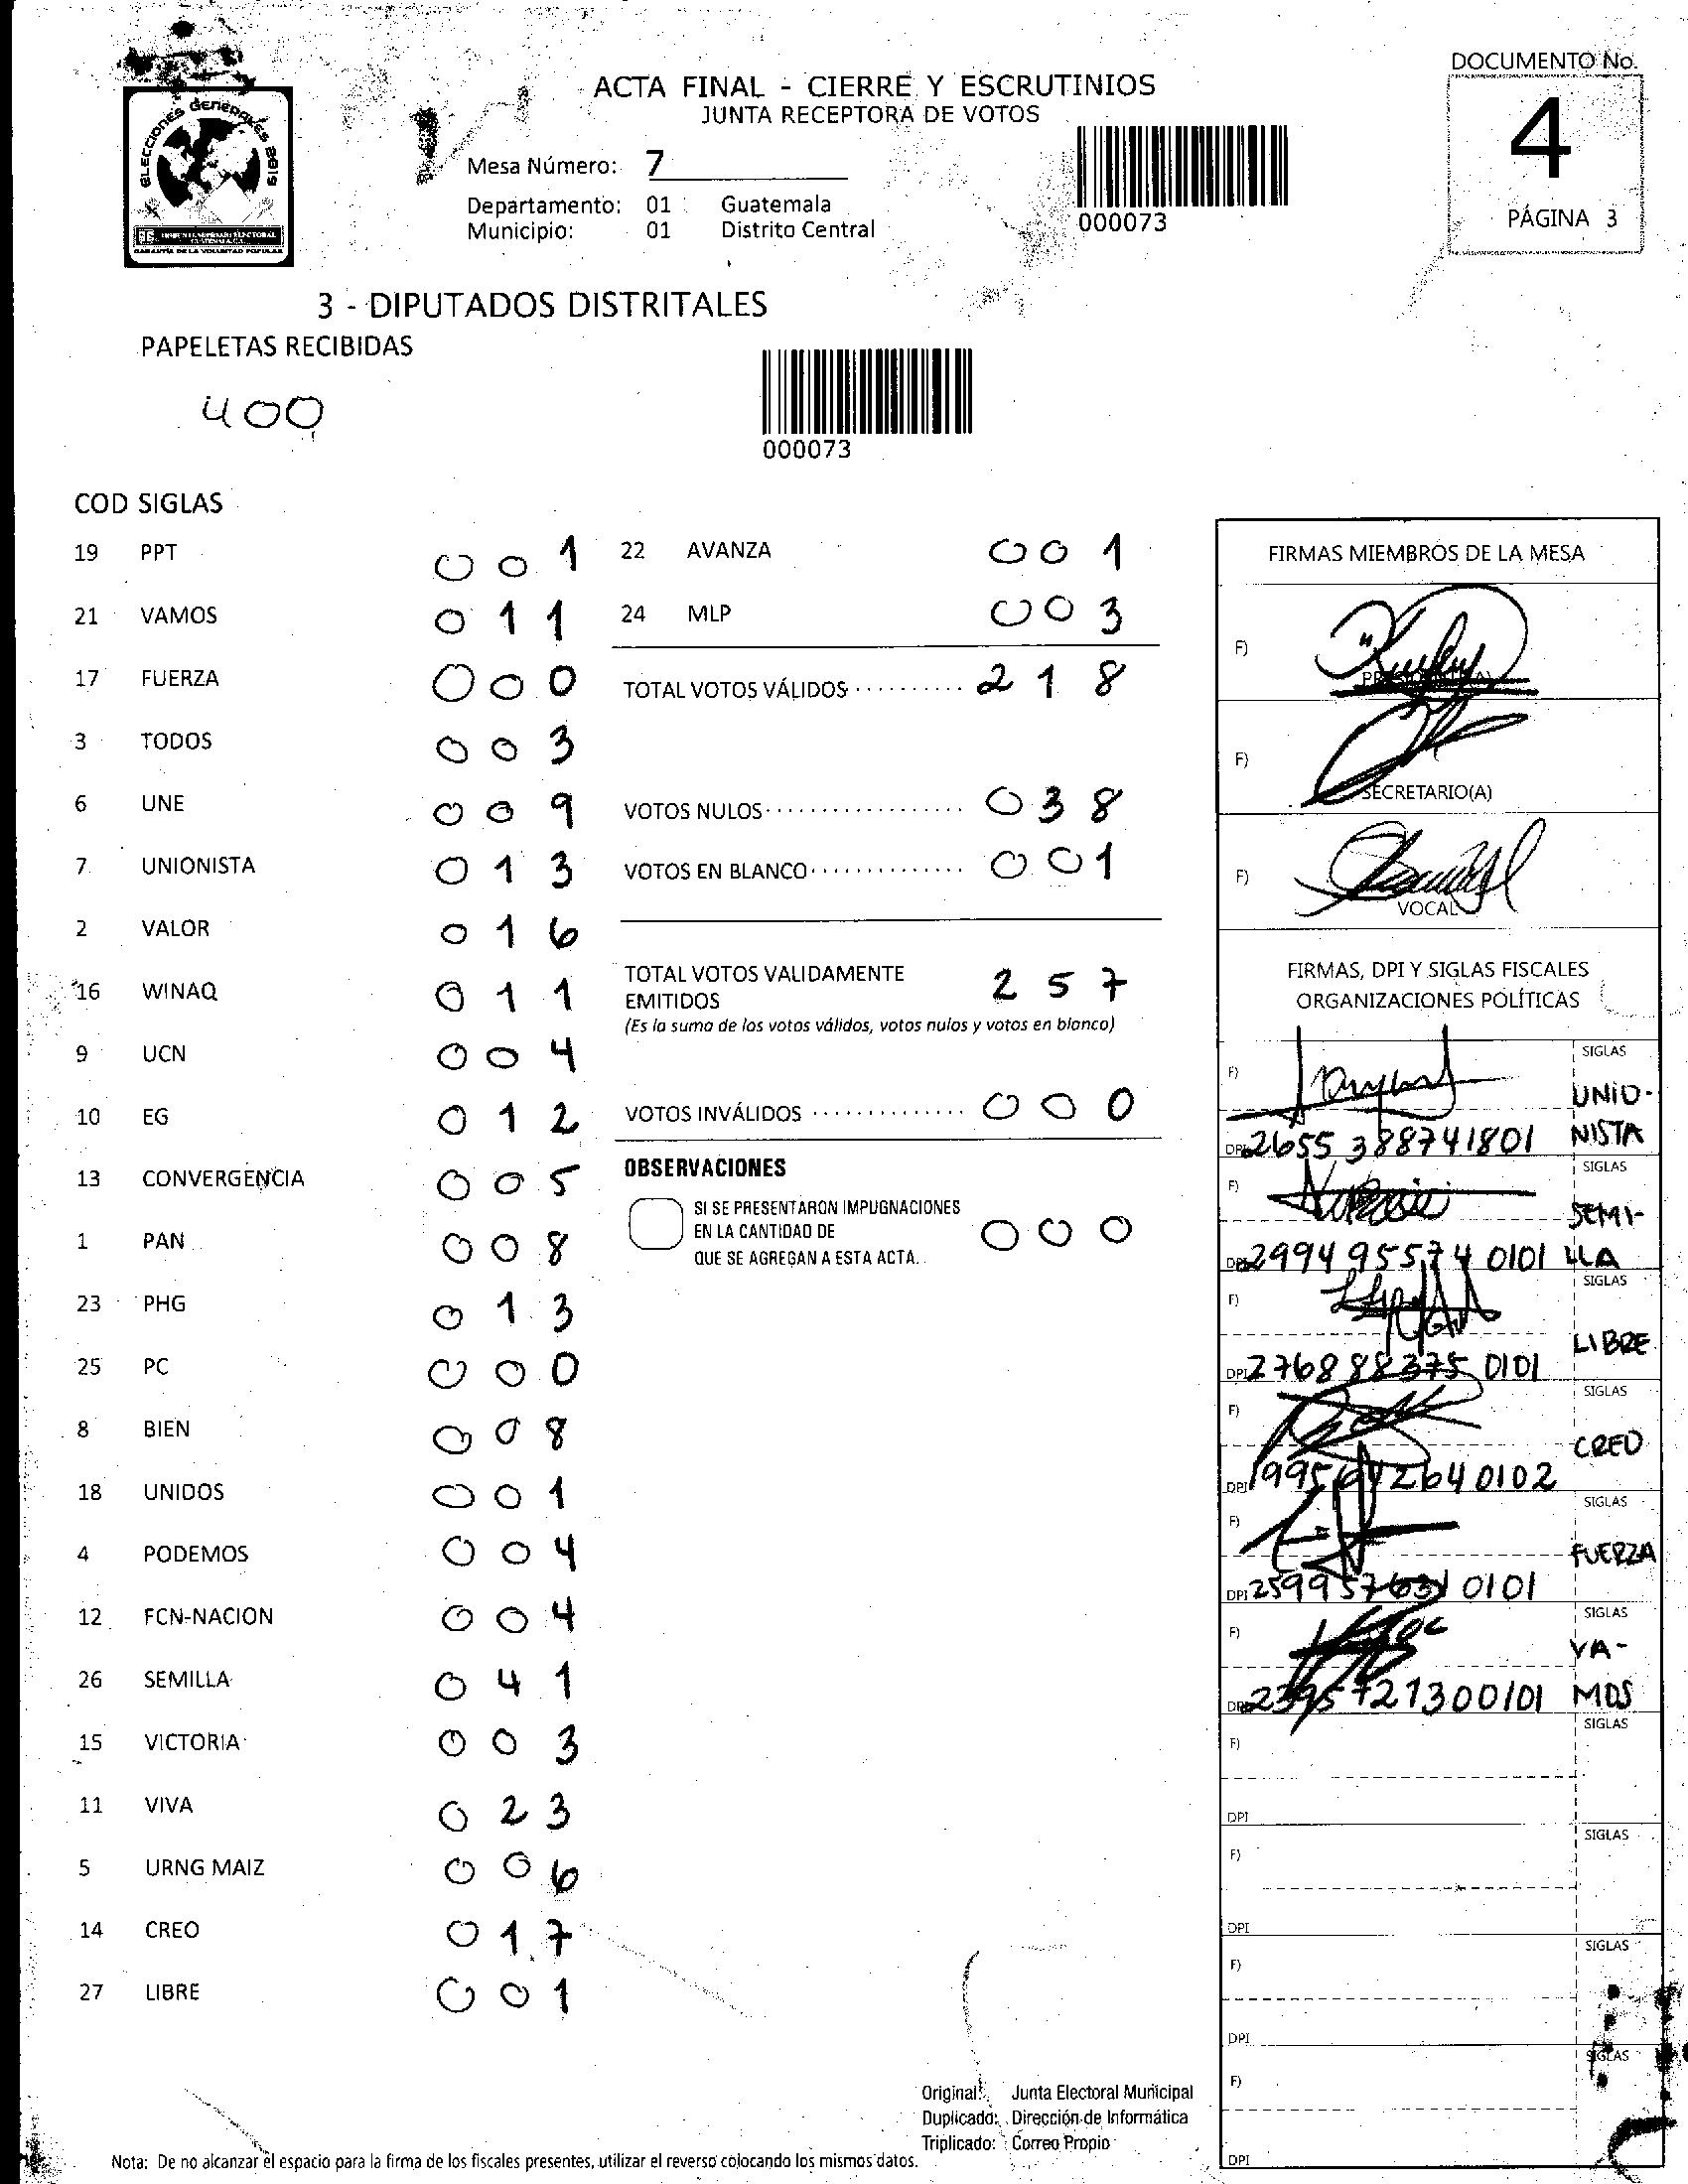 DOCUMENTO No.
4
PÁGINA 3
ACTA FINAL - CIERRE Y ESCRUTINIOS
JUNTA RECEPTORA DE VOTOS
ELECCIONES GENERALES 2019
GARANTÍA DE LA VOLUNTAD POPULAR
Mesa Número: 7
Departamento: 01 Guatemala
Municipio: 01 Distrito Central
000073
3 - DIPUTADOS DISTRITALES
PAPELETAS RECIBIDAS
400
000073
COD SIGLAS
19 PPT 001
21 VAMOS 011
17 FUERZA 000
3 TODOS 003
6 UNE 009
7 UNIONISTA 013
2 VALOR 016
16 WINAQ 011
9 UCN 004
10 EG 012
13 CONVERGENCIA 005
1 PAN 008
23 PHG 013
25 PC 000
8 BIEN 008
18 UNIDOS 001
4 PODEMOS 004
12 FCN-NACION 004
26 SEMILLA 041
15 VICTORIA 003
11 VIVA 023
5 URNG MAIZ 006
14 CREO 017
27 LIBRE 001
22 AVANZA 001
24 MLP 003
TOTAL VOTOS VÁLIDOS 218
VOTOS NULOS 038
VOTOS EN BLANCO 001
TOTAL VOTOS VALIDAMENTE
EMITIDOS 257
(Es la suma de los votos válidos, votos nulos y votos en blanco)
VOTOS INVÁLIDOS 000
OBSERVACIONES
SI SE PRESENTARON IMPUGNACIONES
EN LA CANTIDAD DE 000
QUE SE AGREGAN A ESTA ACTA.
FIRMAS MIEMBROS DE LA MESA
F)
F)
SECRETARIO(A)
F)
VOCAL
FIRMAS, DPI Y SIGLAS FISCALES
ORGANIZACIONES POLÍTICAS
F) SIGLAS
UNIO-
DPI 2655 388741801 NISTA
F) SIGLAS
SEMI-
DPI 2994 95574 0101 LLA
F) SIGLAS
LIBRE
DPI 2768 88375 0101
F) SIGLAS
CREO
DPI 0102
F) SIGLAS
FUERZA
DPI 0101
F) SIGLAS
VA-
DPI MOS
F) SIGLAS
DPI
F) SIGLAS
DPI
F) SIGLAS
DPI
F) SIGLAS
DPI
Original: Junta Electoral Municipal
Duplicado: Dirección de Informática
Triplicado: Correo Propio
Nota: De no alcanzar el espacio para la firma de los fiscales presentes, utilizar el reverso colocando los mismos datos.